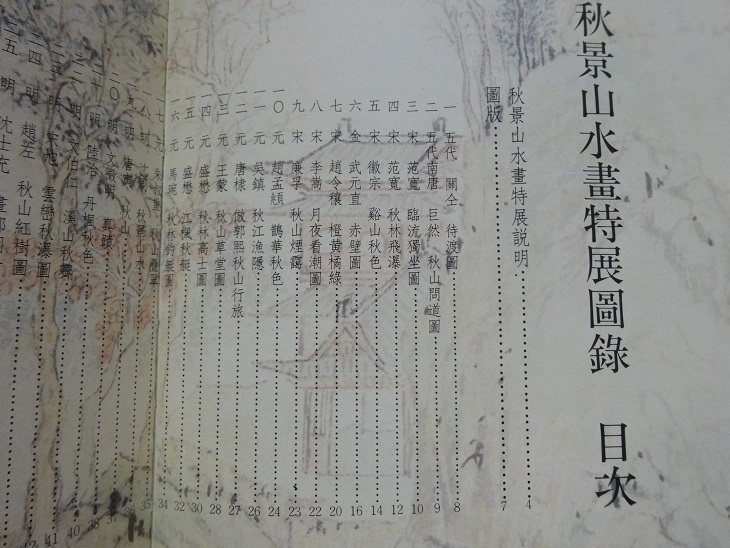 秋景山水畫特展圖錄 目次
秋景山水畫特展説明 4
圖版 7
一 五代 關仝 待渡圖 8
二 五代南唐 巨然 秋山問道圖 9
三 宋 范寬 臨流獨坐圖 10
四 宋 范寬 秋林飛瀑 12
五 宋 徽宗 谿山秋色 14
六 金 武元直 赤壁圖 16
七 宋 趙令穰 橙黃橘綠 20
八 宋 李嵩 月夜看潮圖 22
九 宋 廉孚 秋山煙靄 23
一〇 元 趙孟頫 鵲華秋色 24
一一 元 吳鎮 秋江漁隱 26
一二 元 唐棣 倣郭熙秋山行旅 27
一三 元 王蒙 秋山草堂圖 28
一四 元 盛懋 秋林高士圖 30
一五 元 盛懋 江楓秋艇 32
一六 元 馬琬 秋林釣艇圖 34
一七 元 35
一八 明 沈周
一九 明 唐寅 秋山
二〇 明 文徵明 37
二一 明 陸治 丹楓秋色 38
二二 明 文伯仁 溪山秋霽 40
二三 明 宋旭 雲巒秋瀑圖 41
二四 明 趙左 秋山紅樹圖
二五 明 沈士充